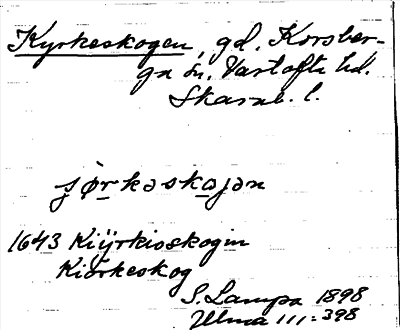 Kyrkeskogen, gd. Korsber-
ga sn. Vartofta hd.
Skarab. l.
ʒǿrkəskoʒən
1643 Kiÿrkioskogin
Kiörkeskog
S. Lampa 1898
Ulma 111:398